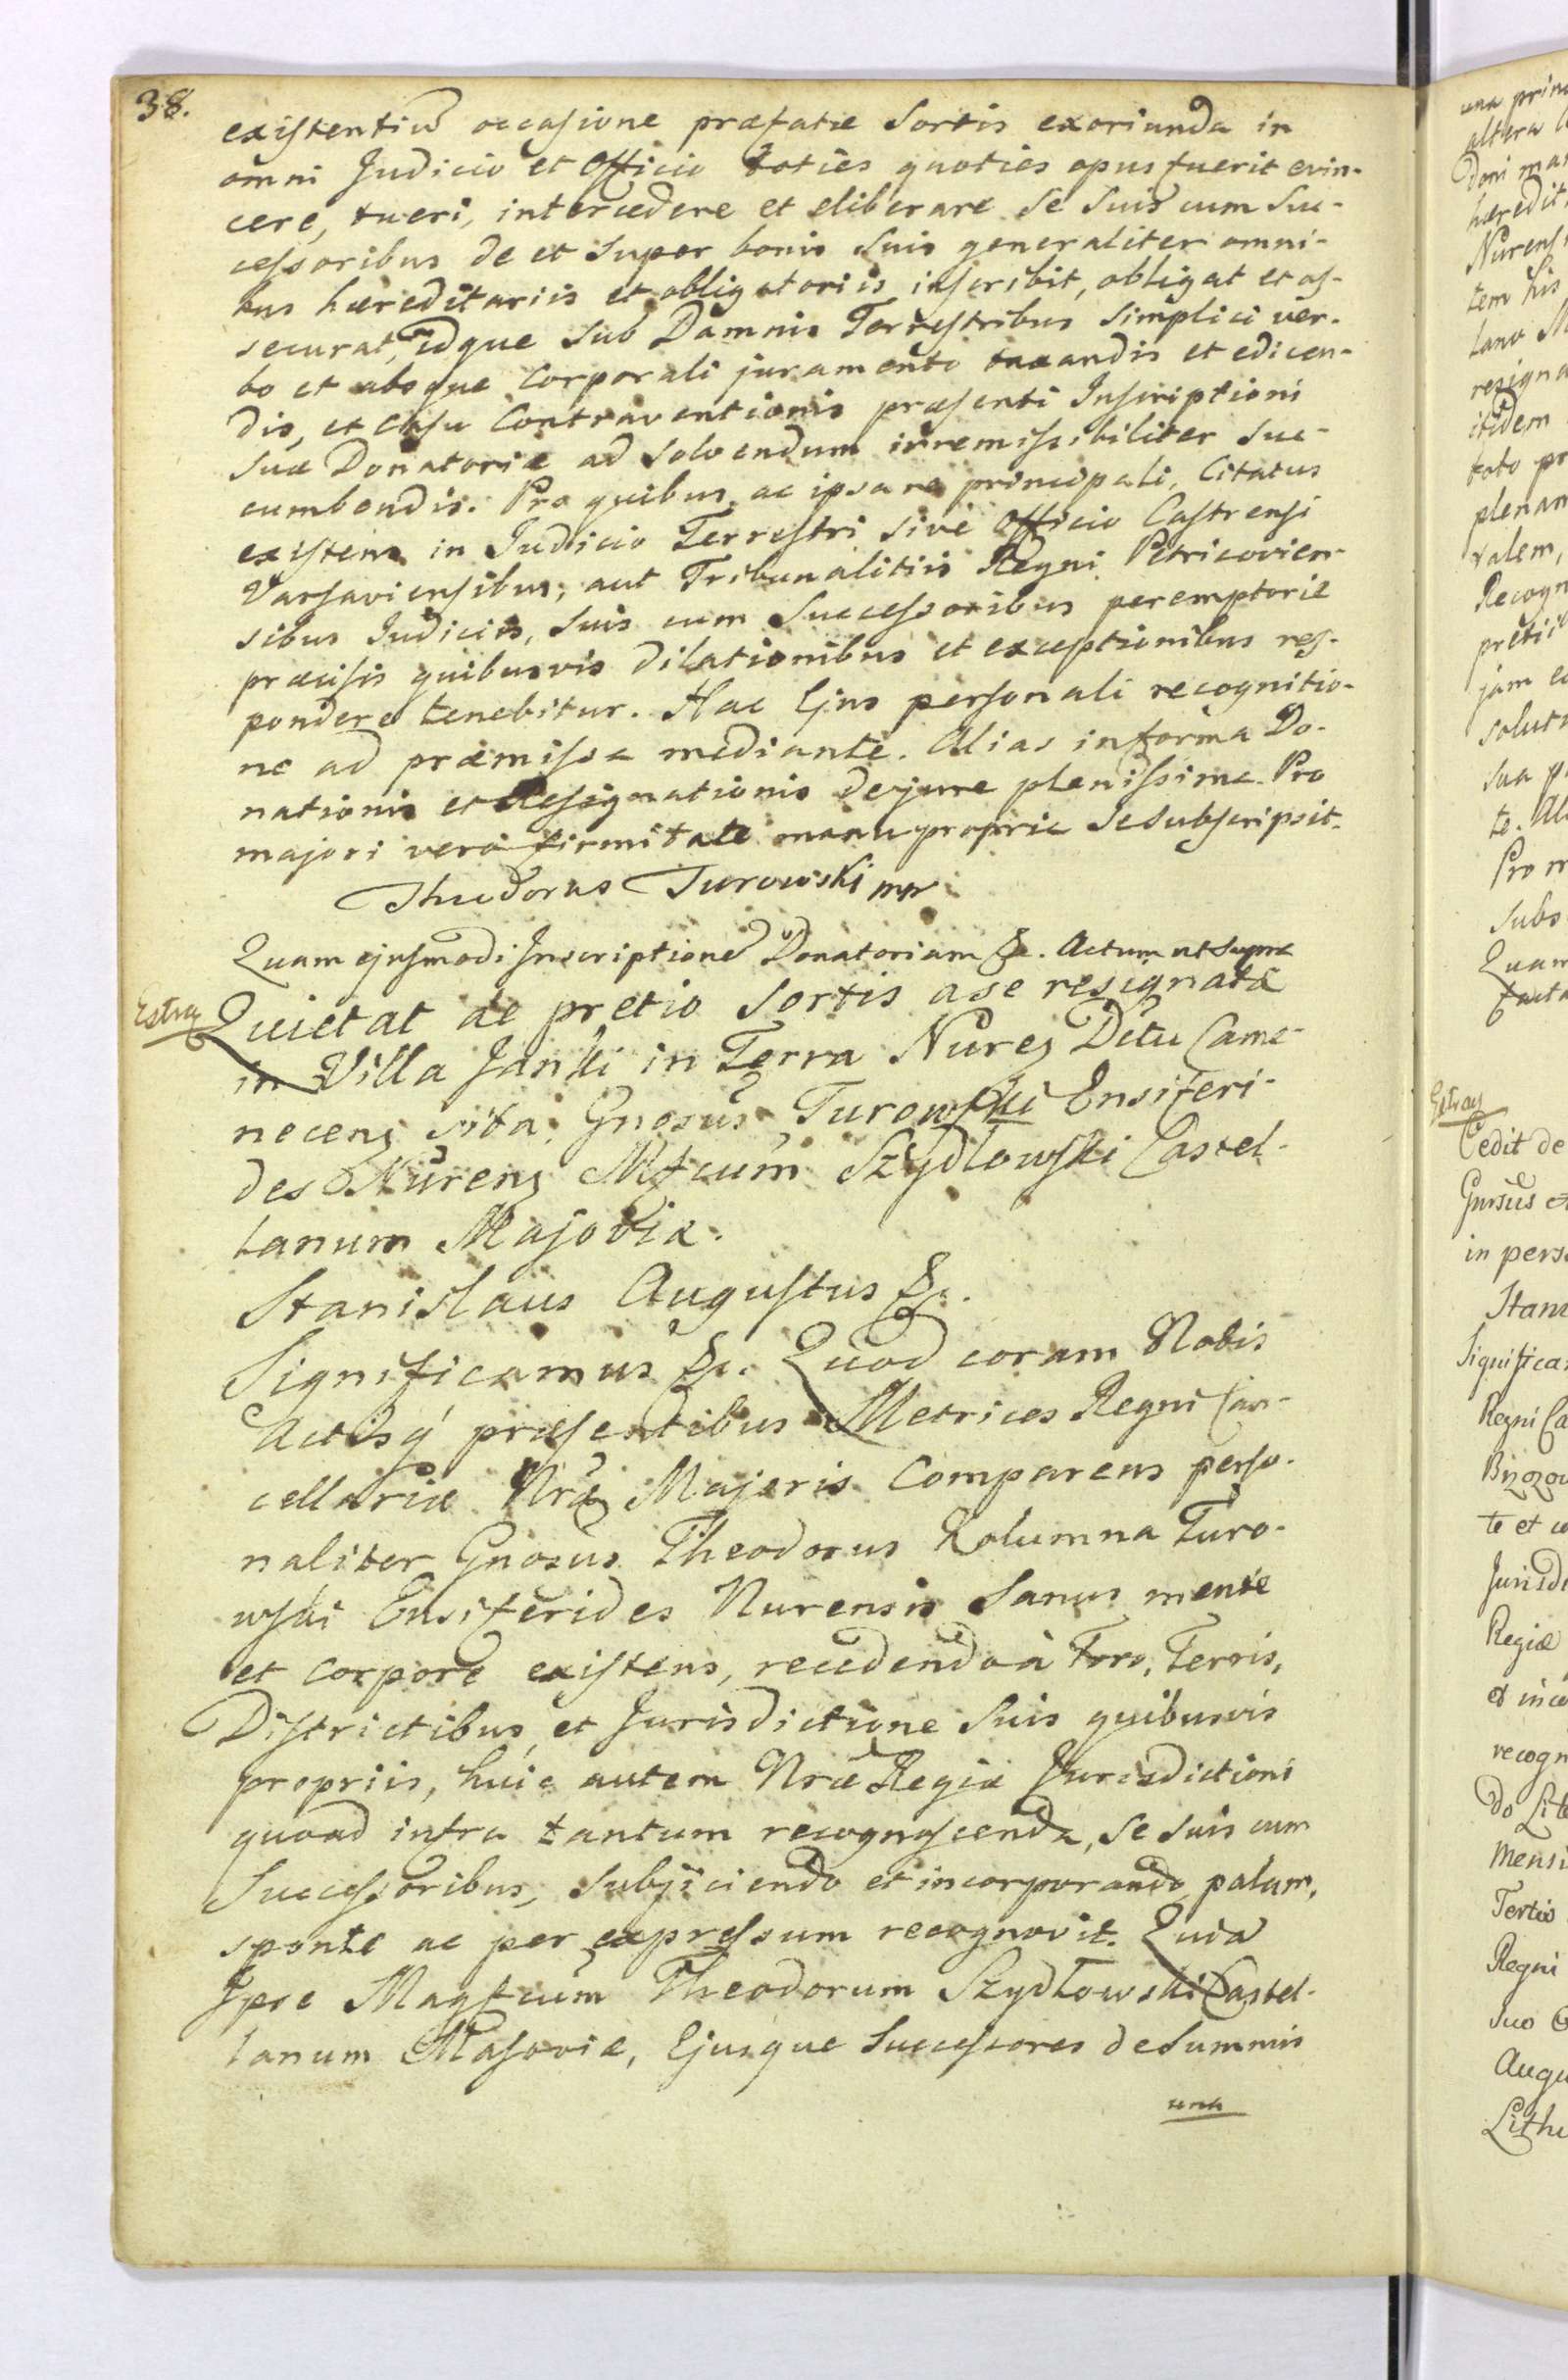 38.
existentiũ occasione præfatæ Sortis exoriunda in
omni Judicio et Officio toties quoties opus fuerit evin-
cere, tueri, intercedere et eliberare se suis cum Suc-
cessoribus de et super bonis suis generaliter omni-
bus hæreditariis et obligatoriis inscribit, obligat et as-
securat, idque sub Damnis Terrestribus simplici ver-
bo et absque corporali juramento taxandis et edicen-
dis, et casu Contraventionis præsenti Inscriptioni
suæ Donatoriæ ad solvendum irremissibiliter suc-
cumbendis. Pro quibus, ac ipsa re principali, Citatus
existens in Judicio Terrestri sive Officio Castrensi
Varsaviensibus, aut Tribunalitiis Regni Petricovien-
sibus Judiciis, suis cum Successoribus peremptorie
præcisis quibusvis dilationibus et exceptionibus res-
pondere tenebitur. Hac Ejus personali recognitio-
ne ad præmissa mediante. Alias in forma Do-
nationis et Resignationis de jure plenissima. Pro
majori vero firmitate manu propria se subscripsit.
Theodorus Turowski mp
Quam ejusmodi Inscriptionẽ Donatoriam &c. Actum ut supra
Extray
Quietat de pretio Sortis a se resignatæ
in Villa Janki in Terra Nureñ Dctu Came-
neceñ sita, Gnosus Turowski Ensiferi-
des Nureñ Mfcum Szydłowski Castel-
lanum Masoviæ.
Stanislaus Augustus &c.
Significamus &c. Quod coram Nobis
Actisq́ præsentibus Metrices Regni Can-
cellariæ Nræ Majoris Comparens perso-
naliter Gnosus Theodorus Kolumna Turo-
wski Ensiferides Nurensis Sanus mente
et corpore existens, recedendo à Foro, Terris,
Districtibus, et Jurisdictione Suis quibusvis
propriis, huic autem Nræ Regiæ Jurisdictioni
quoad infra tantum recognoscenda, se suis cum
Successoribus, subjiciendo et incorporando, palam,
sponte ac per expressum recognovit. Quia
Ipse Magfcum Theodorum Szydłowski Castel-
lanum Masoviæ, Ejusque Successores de summis
una